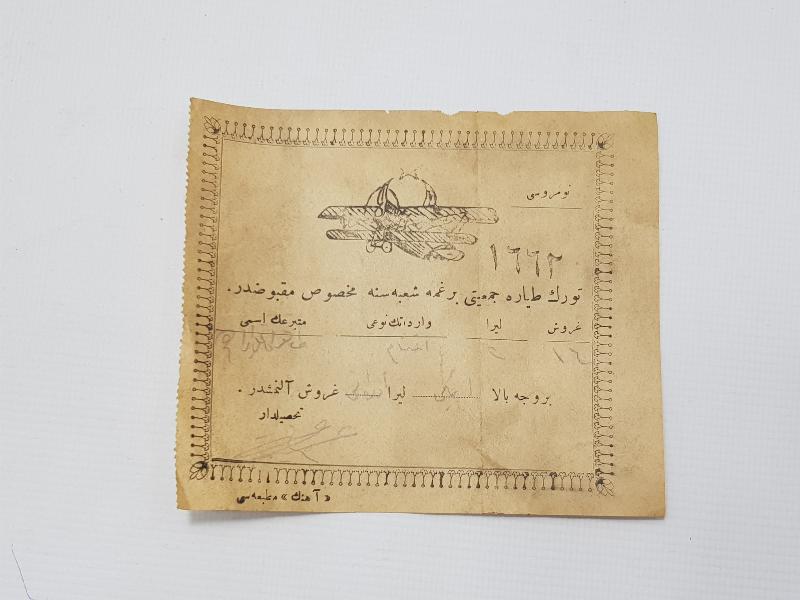 نومروسی
١٦٦٢
تورك طیاره جمعیتی برغمه شعبه‌سنه مخصوص مقبوضدر.
غروش لیرا وارداتك نوعی متبرعك اسمی
بروجه بالا لیرا غروش آلنمشدر.
تحصیلدار
«آهنك» مطبعه‌سی